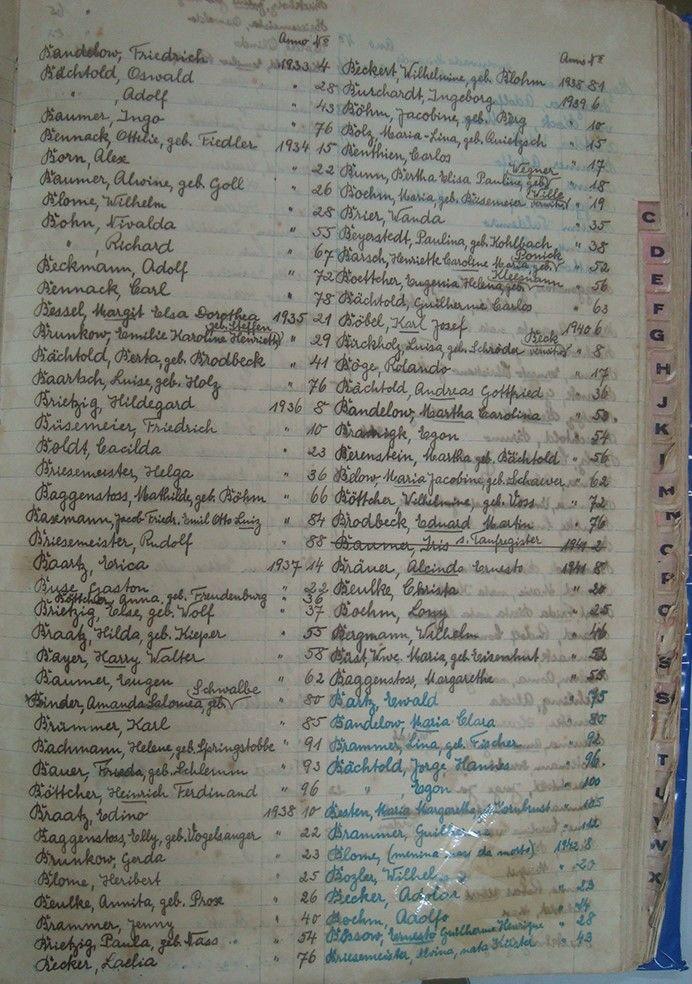 Anno No
Bandelow, Friedrich 1933 4
Bächtold, Oswald " 28
" , Adolf " 43
Baumer, Ingo " 76
Bennack, Ottilie, geb. Fiedler 1934 15
Born, Alex " 22
Baumer, Alwine, geb. Goll " 26
Blome, Wilhelm " 28
Bohn, Nivalda " 55
" , Richard " 67
Beckmann, Adolf " 72
Bennack, Carl " 78
Bessel, Margit Elsa Dorothea 1935 21
Brunkow, Emilie Karoline Henriette geb. Steffen " 29
Bächtold, Berta, geb. Brodbeck " 41
Baartsch, Luise, geb. Holz " 76
Brietzig, Hildegard 1936 8
Büsemeier, Friedrich " 10
Boldt, Cacilda " 23
Briesemeister, Helga " 36
Baggenstoss, Mathilde, geb. Böhm " 66
Jacob Friedr. Emil Otto Luiz " 84
Briesemeister, Rudolf " 88
Baartz, Erica 1937 14
Buse, Gaston " 22
Böttcher, Anna, geb. Freudenburg " 36
Brietzig, Else, geb. Wolf " 37
Braatz, Hilda, geb. Kieper " 55
Bayer, Harry Walter " 58
Baumer, Eugen " 62
Binder, Amanda Salomea, geb. Schwalbe " 80
Brümmer, Karl " 85
Bachmann, Helene, geb. Springstobbe " 91
Bauer, Frieda, geb. Schlemm " 93
Böttcher, Heinrich Ferdinand " 96
Braatz, Edino 1938 10
Baggenstoss, Elly, geb. Vogelsanger " 22
Brunkow, Gerda " 23
Blome, Heribert " 25
Beulke, Annita, geb. Prox " 26
Brammer, Jenny " 40
Brietzig, Paula, geb. Nass " 54
Becker, Laelia " 76
Anno No
Beckert, Wilhelmine, geb. Blohm 1938 81
Burchardt, Ingeborg 1939 6
Böhm, Jacobine, geb. Berg " 10
Bolz, Maria-Lina, geb. " 15
Benthien, Carlos " 17
Bunn, Bertha Elisa Pauline, geb. Wegner " 18
Boehm, Maria, geb. Büsemeier, verwitw. Wille " 19
Brier, Wanda " 35
Beyerstedt, Paulina, geb. Kohlbach " 38
Barsch, Henriette Caroline Maria geb. Ponick " 52
Boettcher, Eugenia Helena, geb. Kleesmann " 56
Bächtold, Guilherme Carlos " 63
Böbel, Karl Josef 1940 6
Birckholz, Luisa, geb. Schröder, verwitw. Beck " 8
Böge, Rolando " 17
Bächtold, Andreas Gottfried " 36
Bandelow, Martha Carolina " 50
Egon " 54
Berenstein, Martha geb. Bächtold " 56
Bülow, Maria Jacobine, geb. " 62
Böttcher Wilhelmine, geb. Voss " 72
Brodbeck, Eduard Martin " 76
Baumer, Iris s. Taufregister 1941 2
Bräuer, Alcindo Ernesto 1941 8
Beulke, Christa " 20
Boehm, Lony " 25
Bergmann, Wilhelm " 46
Wwe. Maria, geb. " 51
Baggenstoss, Margarethe " 59
Bartz, Ewald " 75
Bandelow, Maria Clara " 80
Brammer, Lina, geb. Fischer " 92
Bächtold, Jorge " 96
" , Egon " 100
Besten, Maria Margarethe " 105
Brammer, " 112
Blome, (menina, nasc. da morto) 1942 8
Bogler, " 20
Becker, " 23
Boehm, Adolfo " 24
Ernesto Guilherme Henrique " 28
Briesemeister, Alvina, nata " 43
C
D
E
F
G
H
J
K
L
M
N
O
P
S
T
U
V
W
X